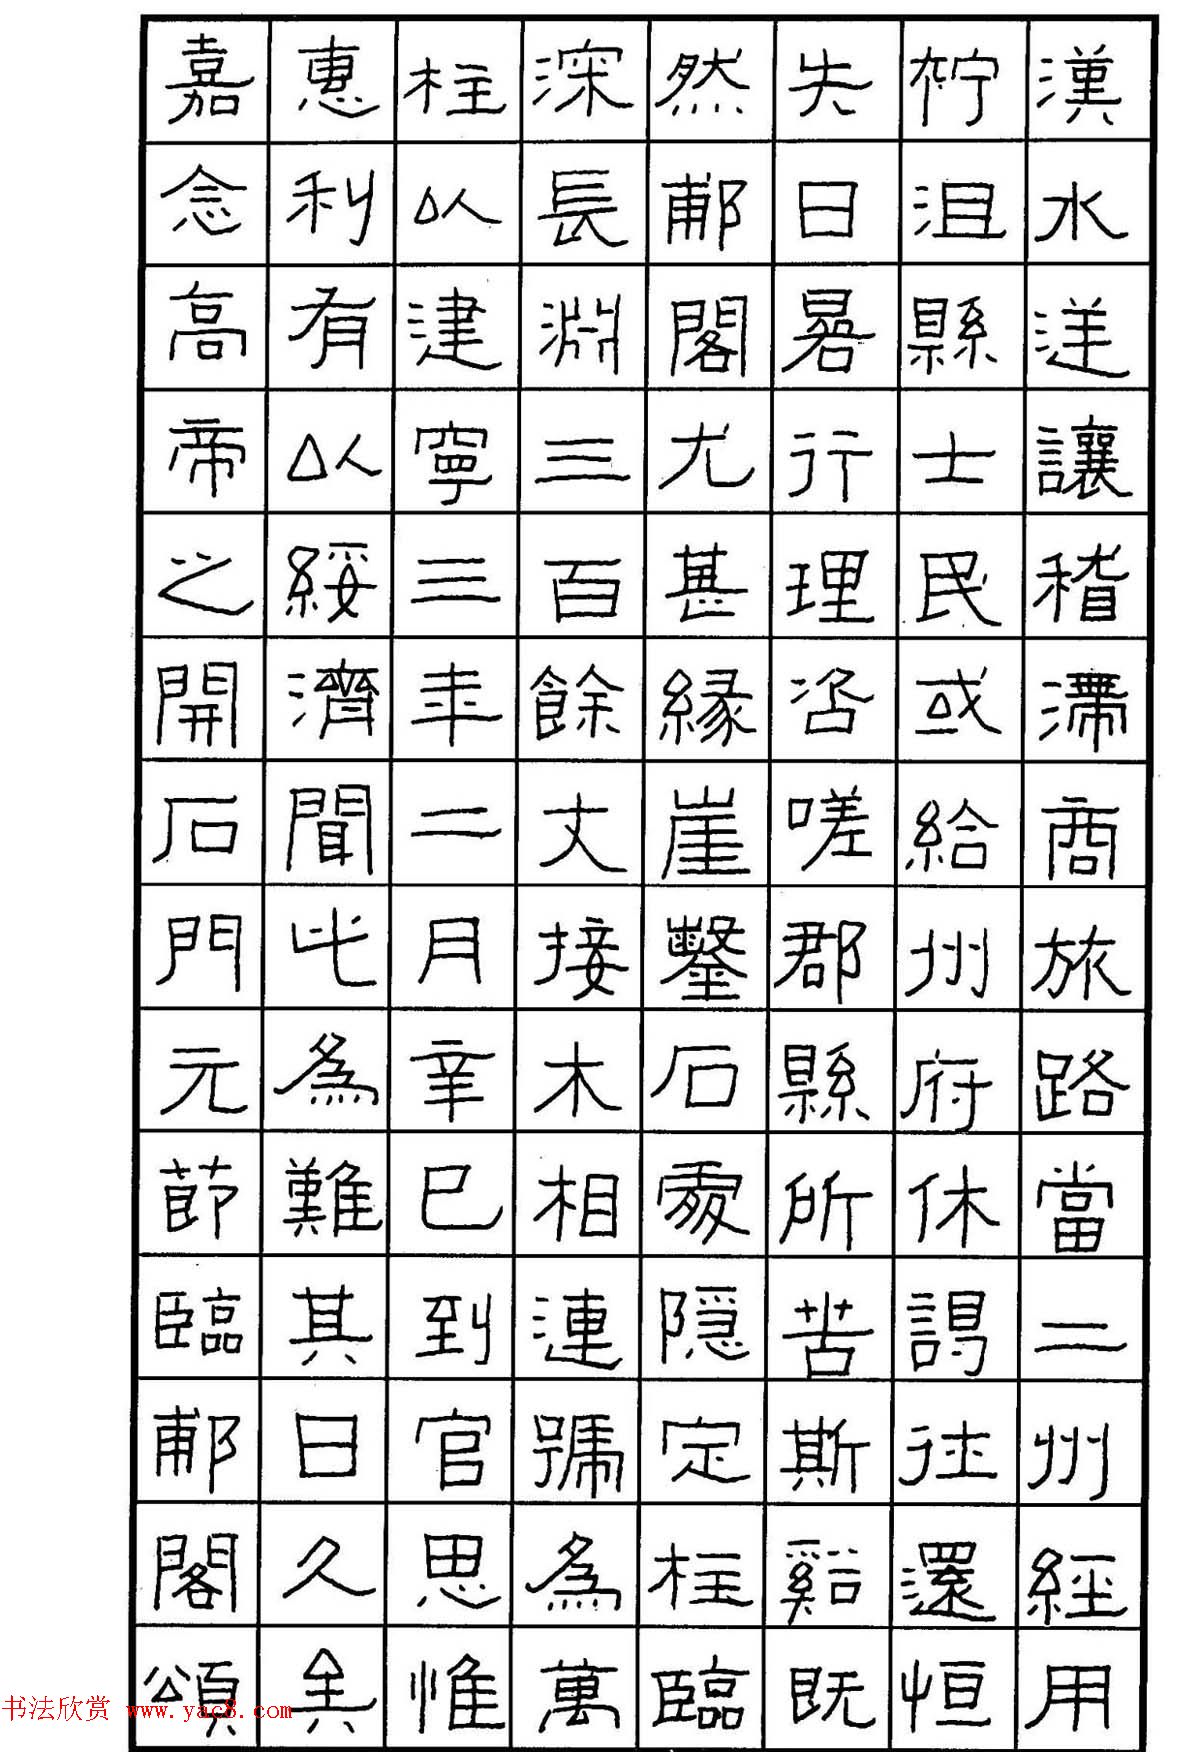 漢水逆讓稽滯商旅路當二州經用
柠沮縣士民或給州府休謁往還恒
失日晷行理咨嗟郡縣所苦斯谿既
然郙閣尤甚緣崖鑿石處隱定柱臨
深長淵三百餘丈接木相連號為萬
柱以建寧三年二月辛巳到官思惟
惠利有以綏濟聞此為難其日久矣
嘉念高帝之開石門元節臨郙閣頌
书法欣赏 www.yac8.com